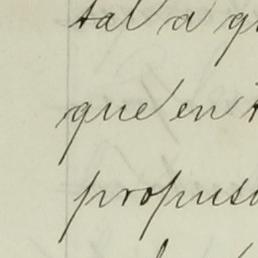 tal a
que en
propuso